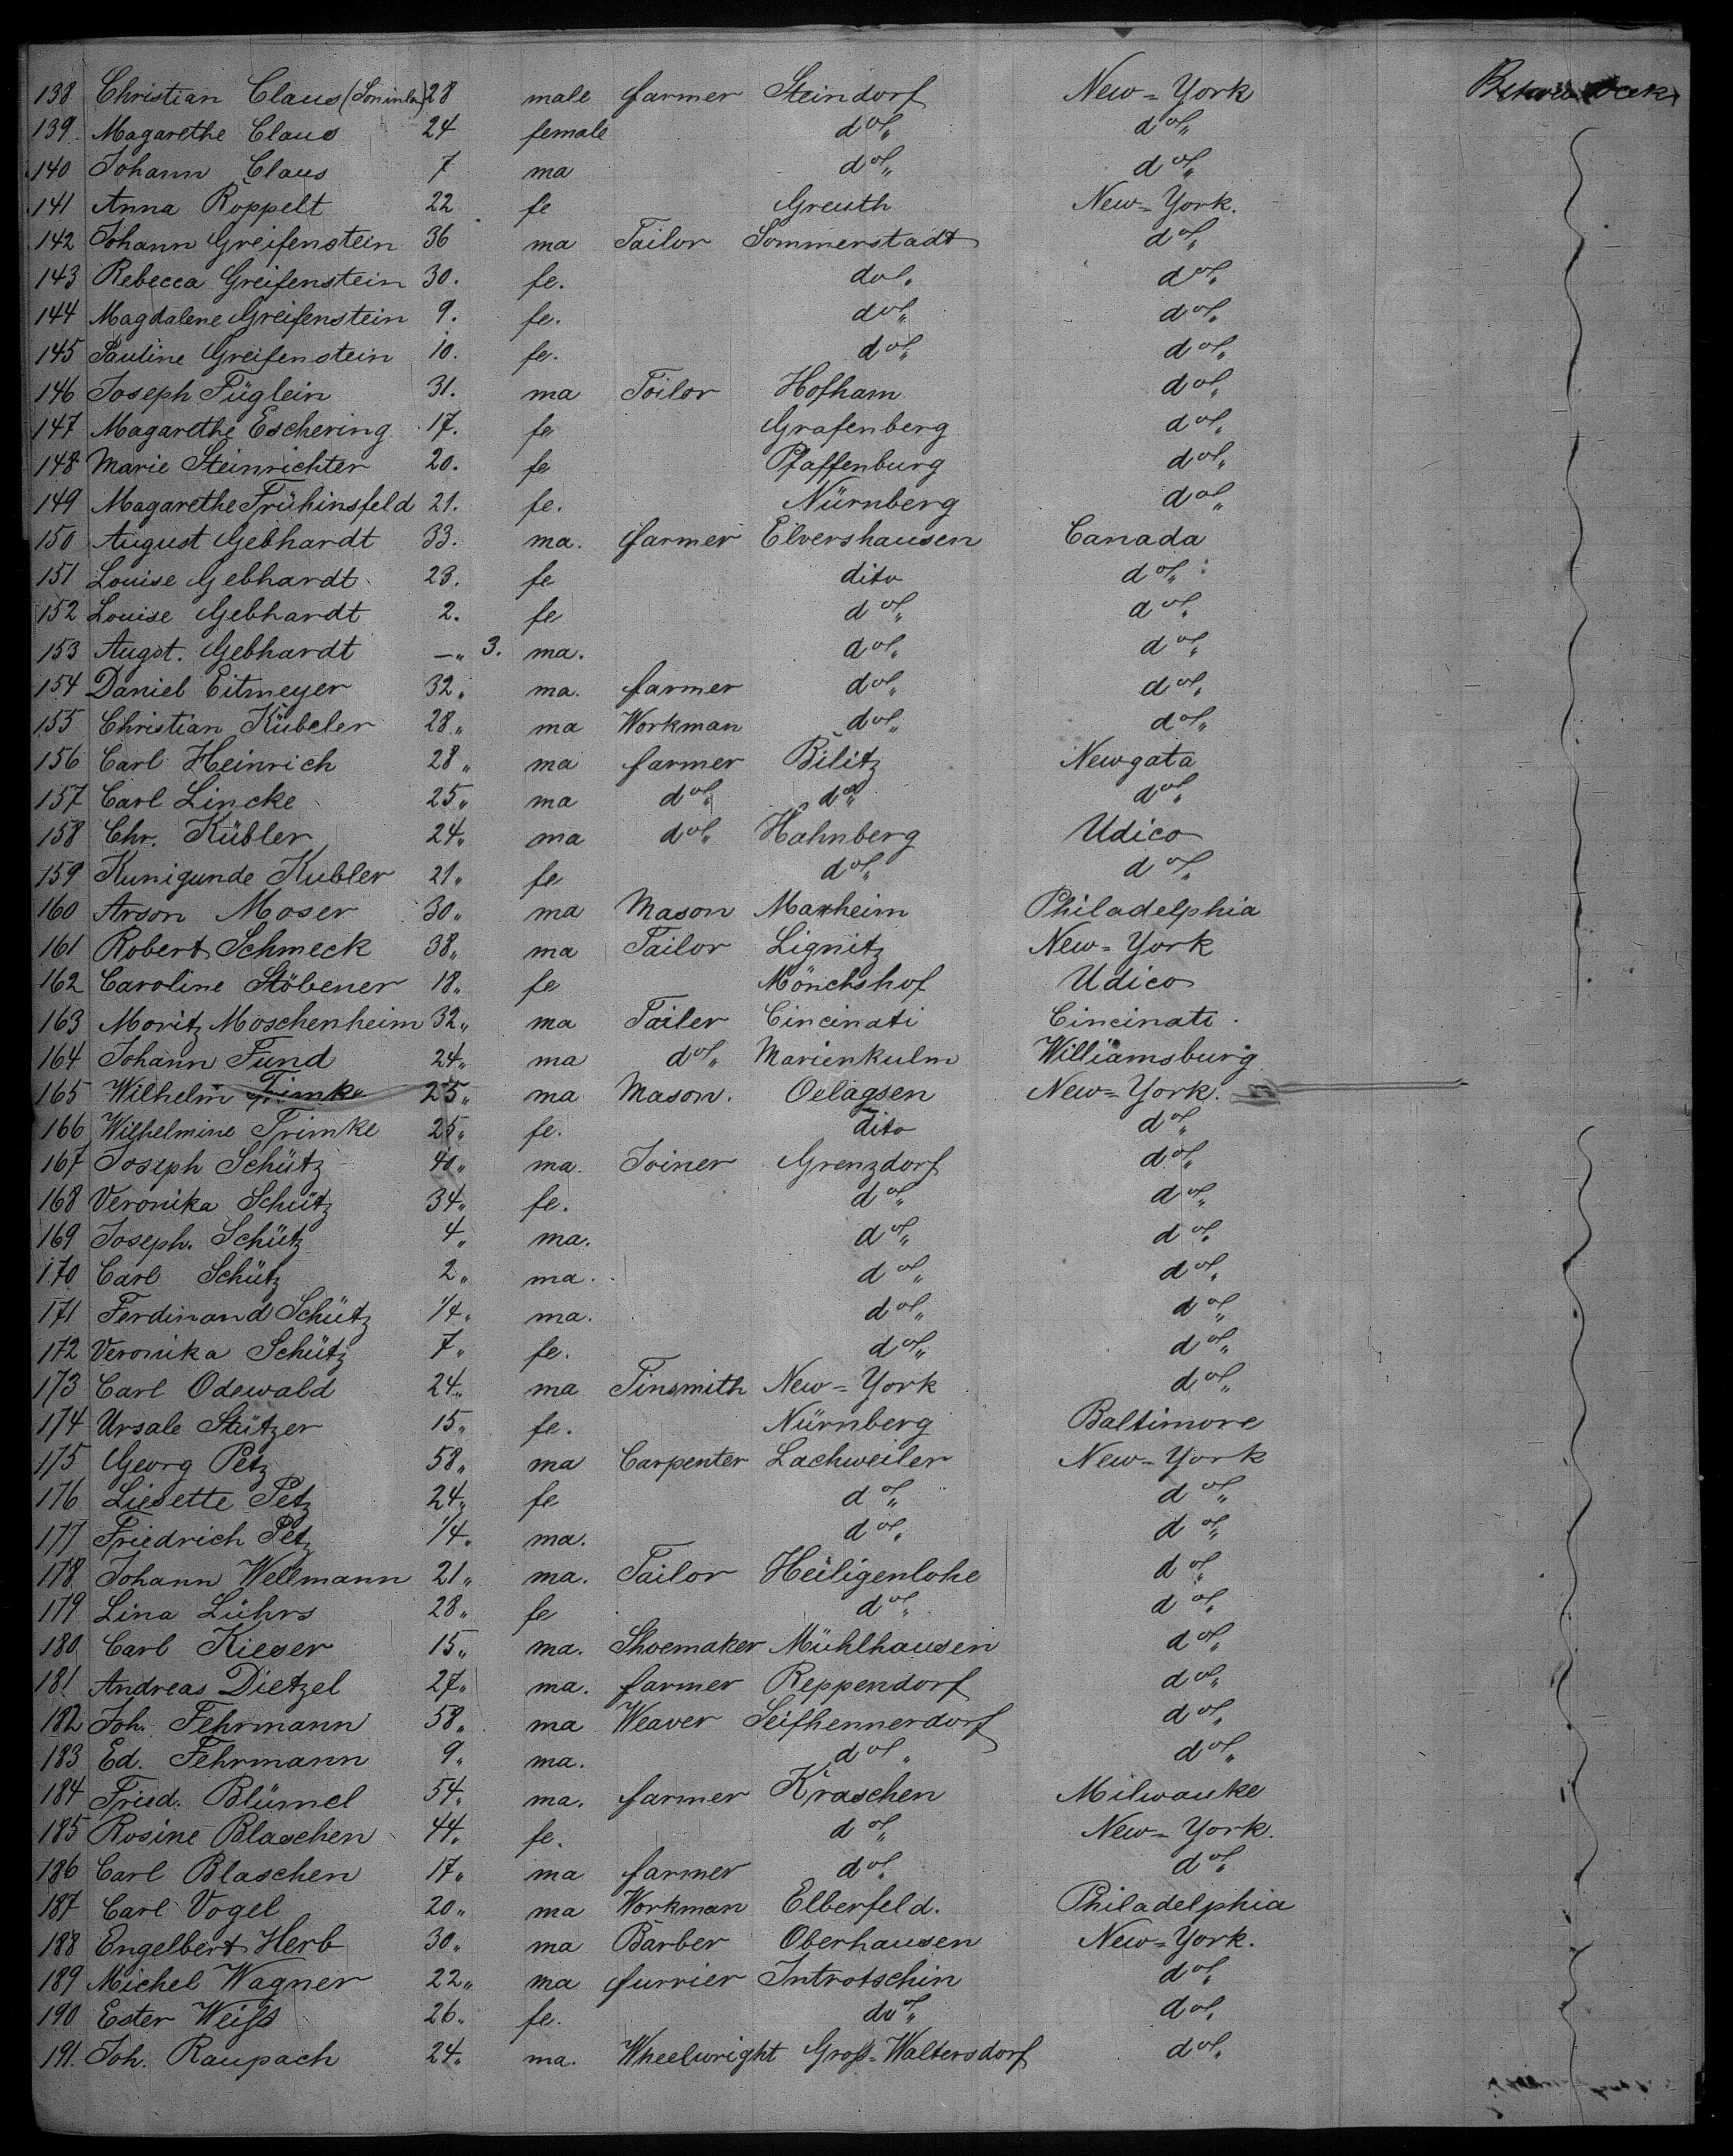 138 Christian Claus (Soninlaw) 28 male farmer Steindorf New=York Between decks
139. Magarethe Claus 24 female do" do"
140 Johann Claus 7 ma do" do"
141 Anna Röppelt 22 fe Greuth New=York.
142 Johann Greifenstein 36 ma Tailor Sommerstadt do"
143 Rebecca Greifenstein 30. fe. do" do"
144 Magdalene Greifenstein 9. fe. do" do"
145 Pauline Greifenstein 10. fe. do" do"
146 Joseph Füglein 31. ma Toilor Hofham do"
147 Magarethe Eschering 17. fe Grafenberg do"
148 Marie Steinrichter 20. fe Pfaffenburg do"
149 Magarethe Frühinsfeld 21. fe. Nürnberg do"
150 August Gebhardt 33. ma. farmer Elvershausen Canada
151 Louise Gebhardt 23. fe dito do"
152 Louise Gebhardt 2. fe do" do"
153 Augst. Gebhardt —" 3. ma. do" do"
154 Daniel Eitmeyer 32" ma. farmer do" do"
155 Christian Kübeler 28" ma Workman do" do"
156 Carl Heinrich 28" ma farmer Bilitz Newgata
157 Carl Lincke 25" ma do" do" do"
158 Chr. Kübler 24" ma do" Hahnberg Udico
159 Kunigunde Kubler 21" fe do" do"
160 Arson Moser 30" ma Mason Manheim Philadelphia
161 Robert Schmeck 38" ma Tailor Lignitz New=York
162 Caroline Stöbener 18" fe Mönchshof Udico
163 Moritz Moschenheim 32" ma Tailer Cincinati Cincinati.
164 Johann Fund 24" ma do" Marienkulm Williamsburg
165 Wilhelm Trimke 25" ma Mason. Oelagsen New=York.
166 Wilhelmine Trimke 25" fe. dito do"
167 Joseph Schütz 40" ma. Joiner Grenzdorf do"
168 Veronika Schütz 34" fe. do" do"
169 Joseph. Schütz 4" ma. do" do"
170 Carl Schütz 2" ma. do" do"
171 Ferdinand Schütz 1/4" ma. do" do"
172 Veronika Schütz 7" fe. do" do"
173 Carl Odewald 24" ma Tinsmith New=York do"
174 Ursale Stützer 15" fe. Nürnberg Baltimore
175 Georg Petz 58" ma Carpenter Lachweiler New=York
176 Liesette Petz 24" fe do" do"
177 Friedrich Petz 1/4" ma. do" do"
178 Johann Wellmann 21" ma. Tailor Heiligenlohe do"
179 Lina Lührs 28" fe do" do"
180 Carl Kieser 15" ma. Shoemaker Mühlhausen do"
181 Andreas Dietzel 27" ma. farmer Reppendorf do"
182 Joh. Fehrmann 58" ma Weaver Seifhennerdorf do"
183 Ed. Fehrmann 9" ma. do" do"
184 Fried. Blümel 54" ma. farmer Kraschen Milwauke
185 Rosine Blaschen 44" fe. do" New=York.
186 Carl Blaschen 17" ma farmer do" do"
187 Carl Vogel 20" ma Workman Elberfeld. Philadelphia
188 Engelbert Herb 30" ma Barber Oberhausen New=York.
189 Michel Wagner 22" ma furrier Introtschin do"
190 Ester Weiß 26" fe. do" do"
191. Joh. Raupach 24" ma. Wheelwright Groß=Waltersdorf do"